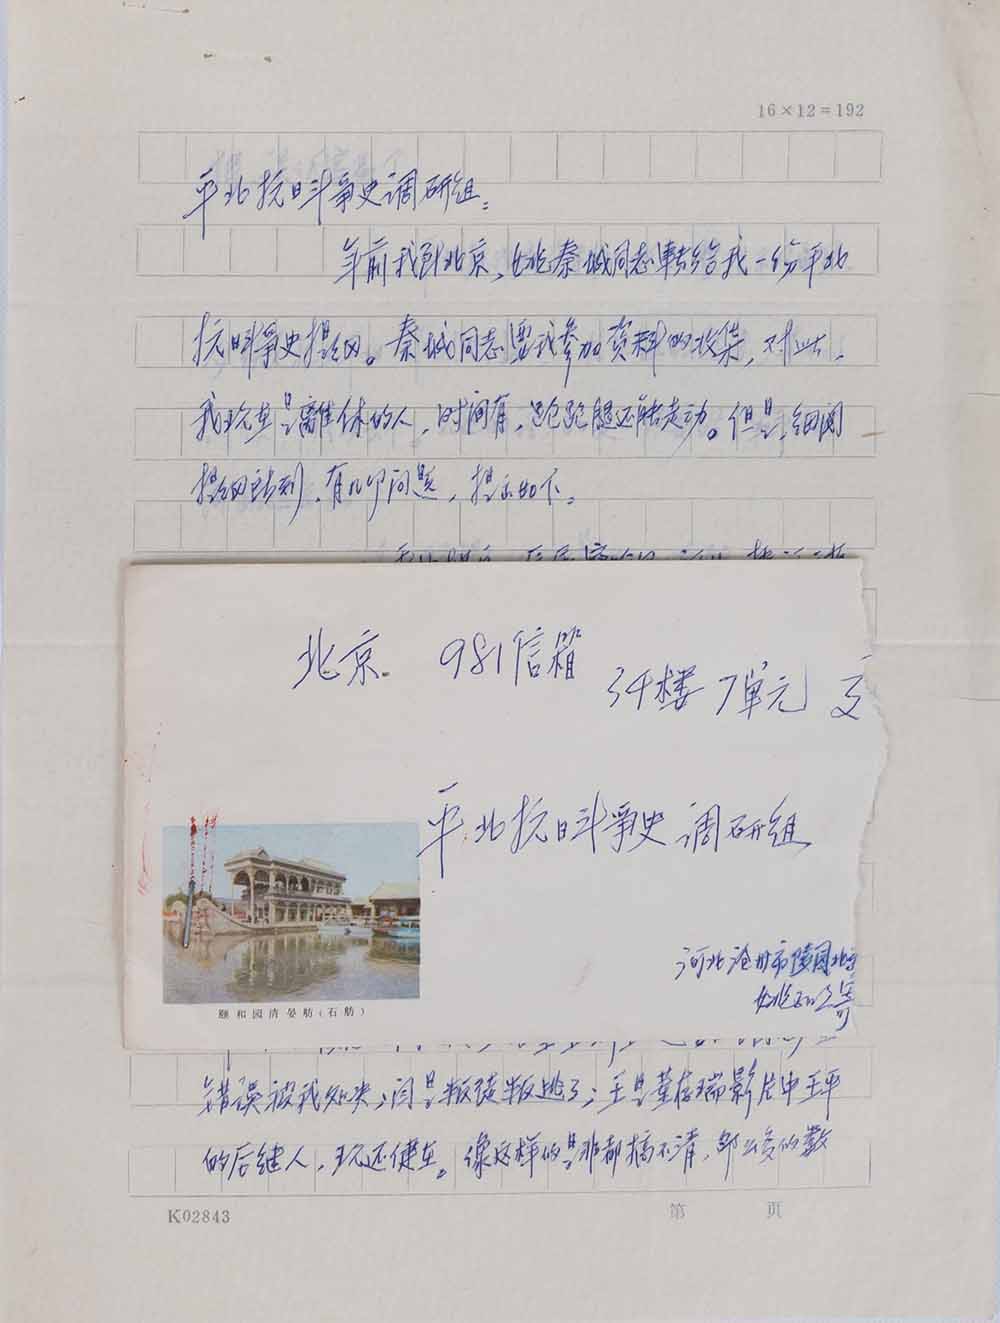 16×12=192
平北抗日斗争史调研组：
年前我到北京，姚秦城同志转给我一份平北
抗日斗争史提纲。秦城同志要我参加资料的收集，对此，
我现在是离休的人，时间有，跑跑腿还能走动。但是，细阅
提纲后刻，有几个问题，提示如下：
北京 981信箱
34楼 7单元
平北抗日斗争史调研组
河北沧州市陵园
寄
颐和园清晏舫(石舫)
错误被我处决；闫是叛徒叛逃了；王是董存瑞影片中王平
的后继人，现还健在。像这样的是非都搞不清，那么多的数
K02843
第 页